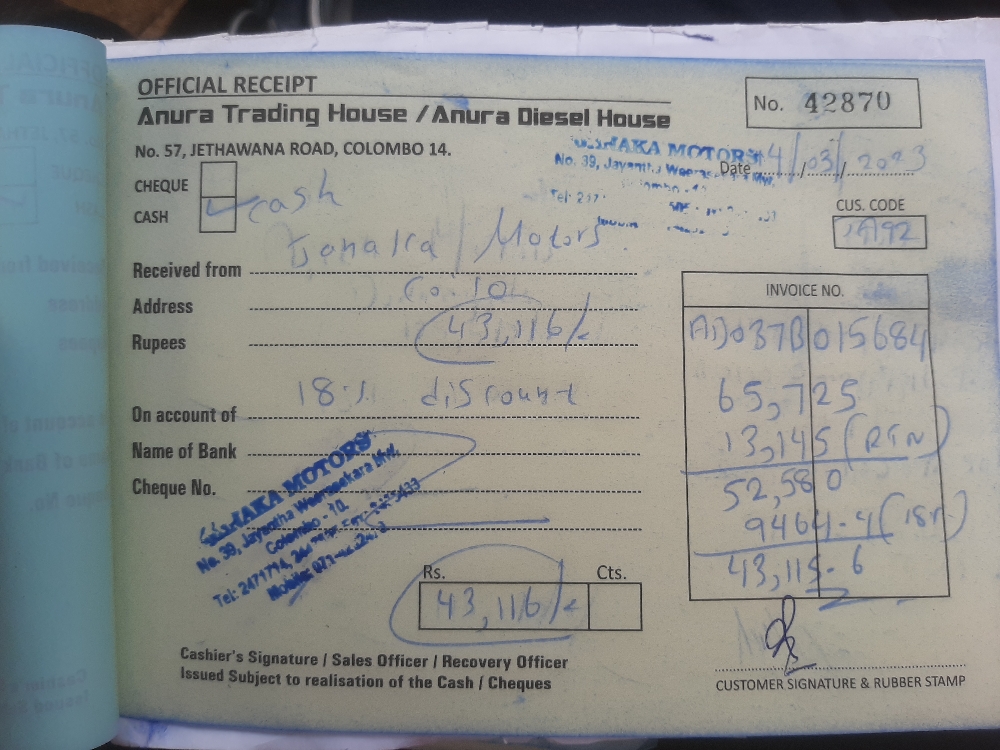 OFFICIAL RECEIPT
No. 42870
Anura Trading House / Anura Diesel House
No. 57, JETHAWANA ROAD, COLOMBO 14.
AKA MOTORS
No. 39, Jayantha
Tel: 247
Date 4/03/2023
CHEQUE
CASH cash
CUS. CODE
Motors
Received from
Address Co. 10
Rupees 43,116/=
18% discount
On account of
Name of Bank
Cheque No.
AKA MOTORS
No. 39, Jayantha Weerasekara Mw.
Colombo - 10.
Tel: 2471714,
Mobile:
INVOICE NO.
015684
65,725
13,145 (RTN)
52,580
9464-4 (18%)
43,115-6
Rs. Cts.
43,116/=
Cashier's Signature / Sales Officer / Recovery Officer
Issued Subject to realisation of the Cash / Cheques
CUSTOMER SIGNATURE & RUBBER STAMP